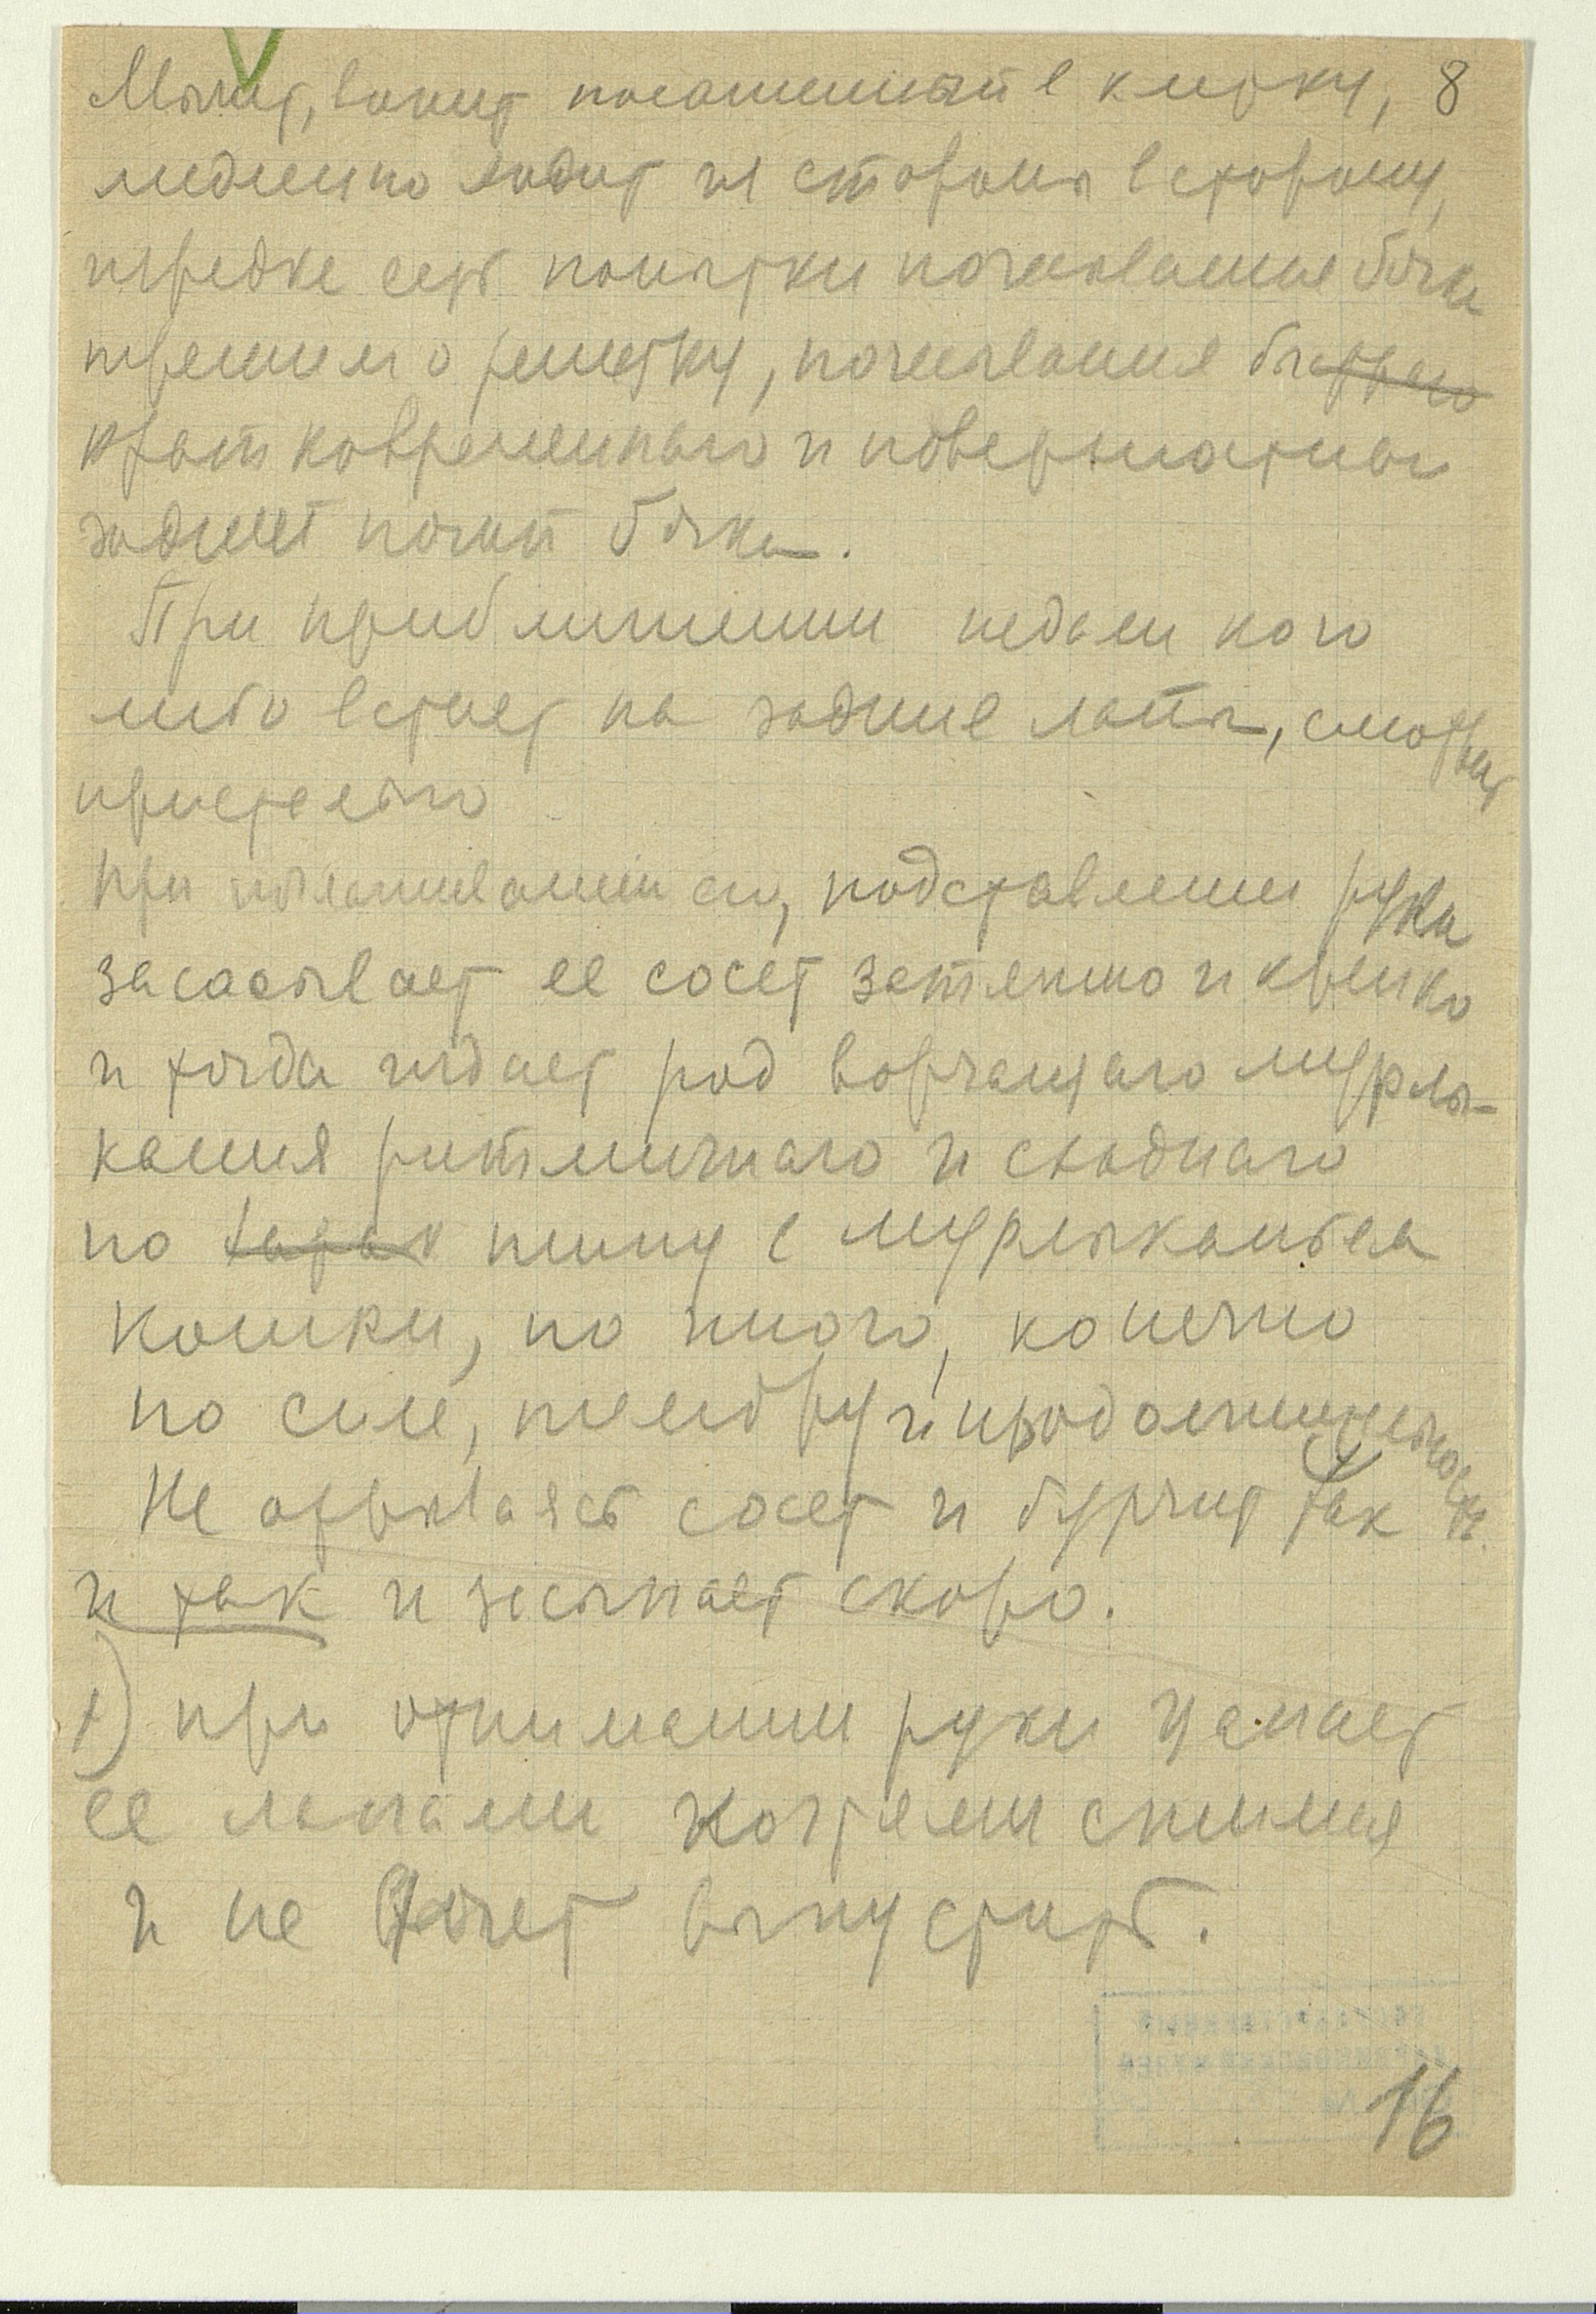 Мычит, вопит посаженный в клетку, 8
медленно ходит из стороны в сторону,
нередке есть попытки почесования бока
трением о решетку, почесывания
кратковременнаго и поверхностнаго
задней ногой бока.
При приближении недалеко кого
либо встает на задние лапы, смотрит
пристально
При поглаживании его, подставлении руки
засасывает ее сосет затяжно и крепко
и тогда издает род ворчащаго мурлы-
кания ритмичнаго и сходнаго
по типу с мурлыканьем
кошки, но иного, конечно
по силе, тембру и продолжительности.
Не отрываясь сосет и бурчит так
и так и засыпает скоро.
1) при отнимании руки цапает
ее лапами когтями
и не хочет выпустить.
16